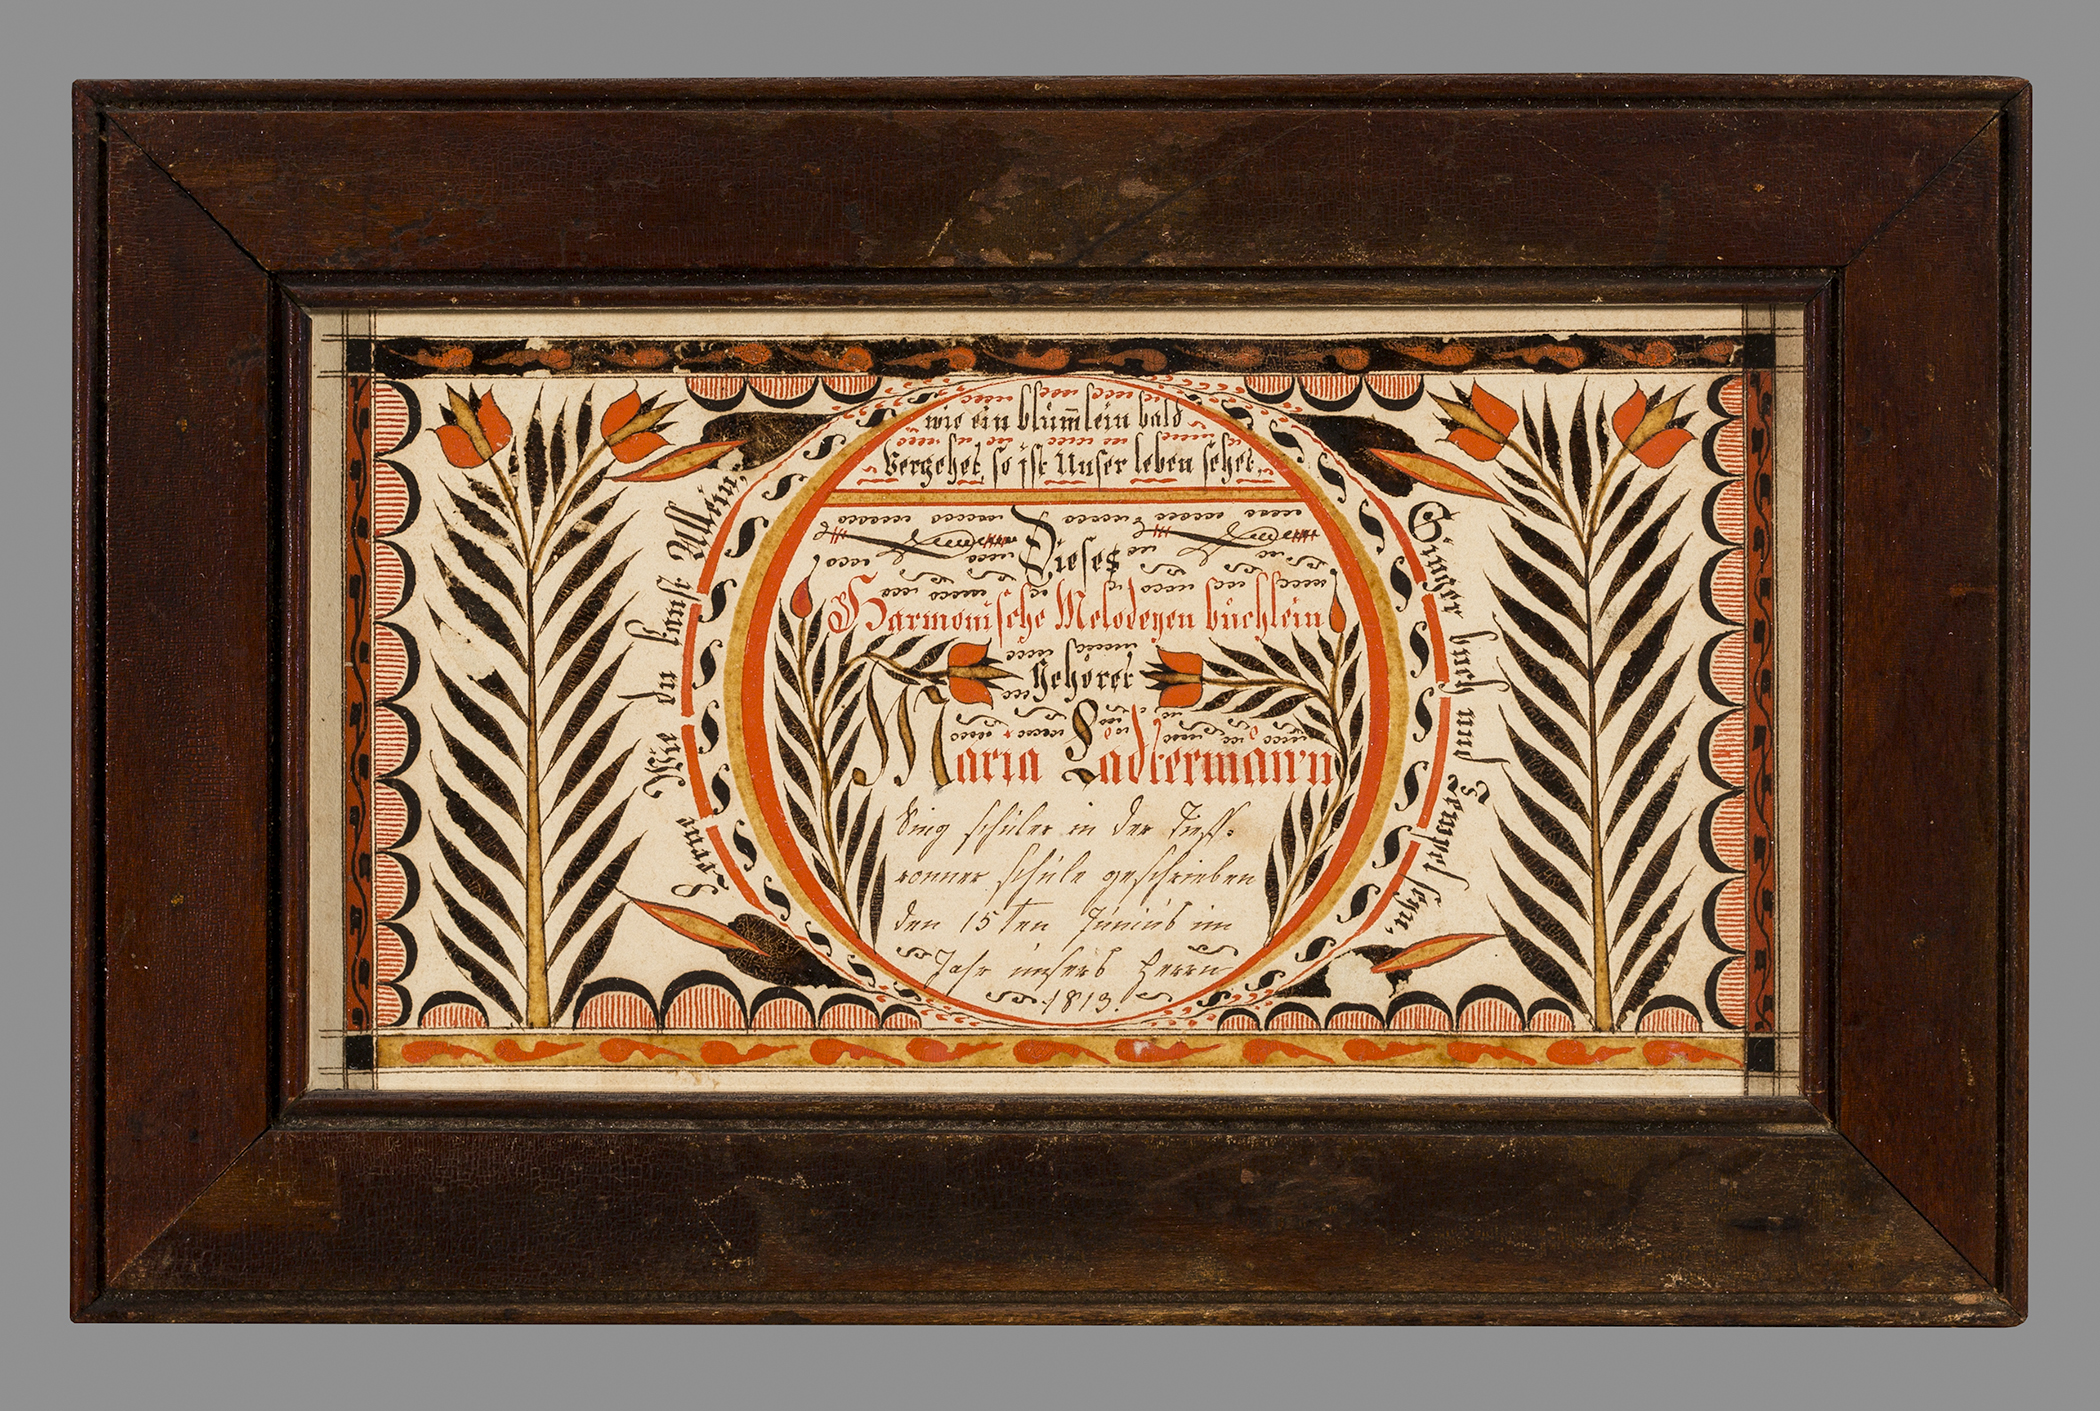 wie ein blümlein bald
Vergehet, so ist Unser leben sehet,
Dieses
Harmonische Melodeyen büchlein
Gehöret
Maria Ladtermänn
Sing schüler in der Dieff-
ronner schüle geschrieben
den 15ten Junius im
Jahr unsers Herrn
1813.
Lerne Wie du staub Allein,
Singer buch und Tempel seyn,